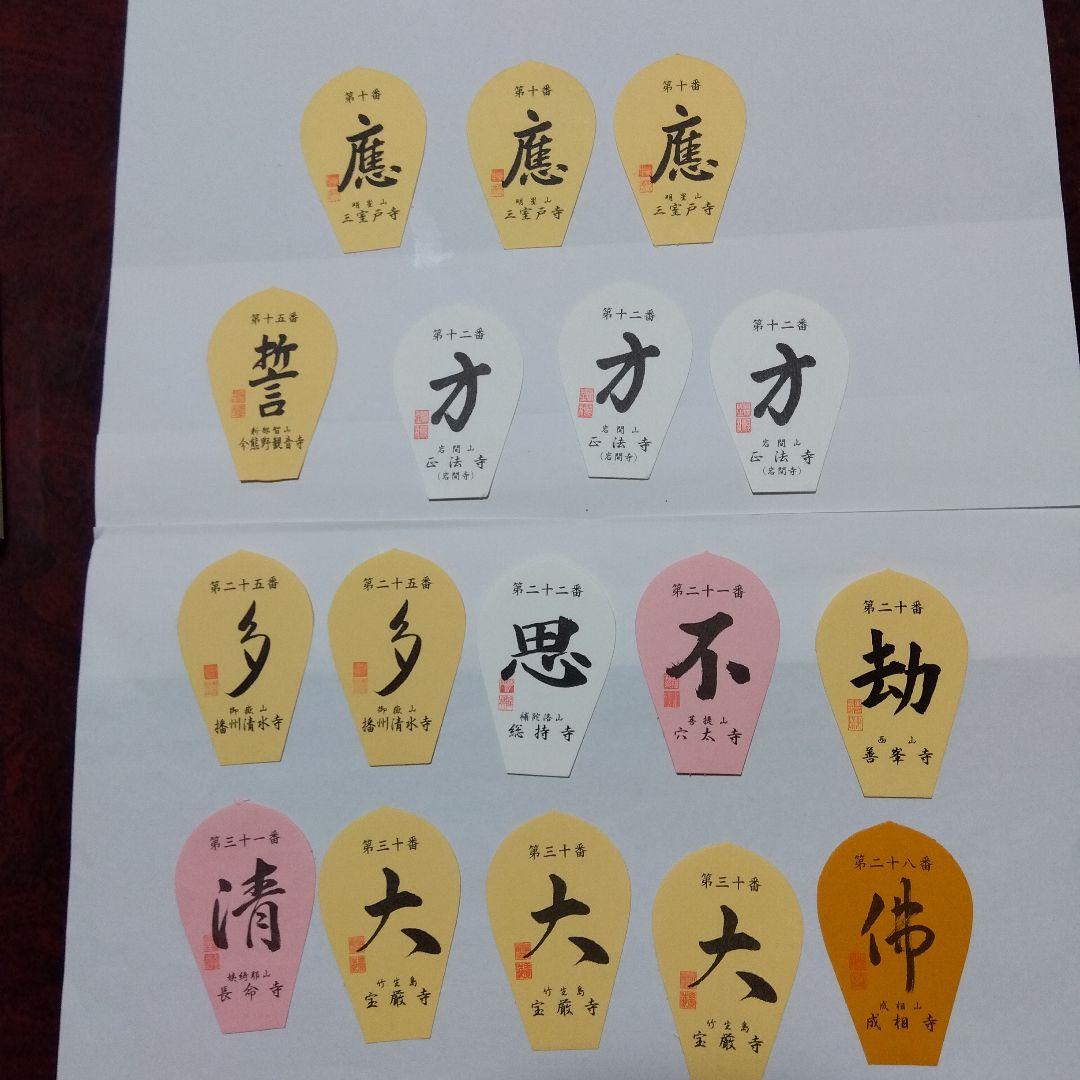 第十番
應
明星山
三室戸寺
第十番
應
明星山
三室戸寺
第十番
應
明星山
三室戸寺
第十五番
誓
新那智山
今熊野観音寺
第十二番
方
岩間山
正法寺
(岩間寺)
第十二番
方
岩間山
正法寺
(岩間寺)
第十二番
方
岩間山
正法寺
(岩間寺)
第二十五番
多
御嶽山
播州清水寺
第二十五番
多
御嶽山
播州清水寺
第二十二番
思
補陀洛山
総持寺
第二十一番
不
菩提山
穴太寺
第二十番
劫
西山
善峯寺
第三十一番
清
姨綺耶山
長命寺
第三十番
大
竹生島
宝厳寺
第三十番
大
竹生島
宝厳寺
第三十番
大
竹生島
宝厳寺
第二十八番
佛
成相山
成相寺